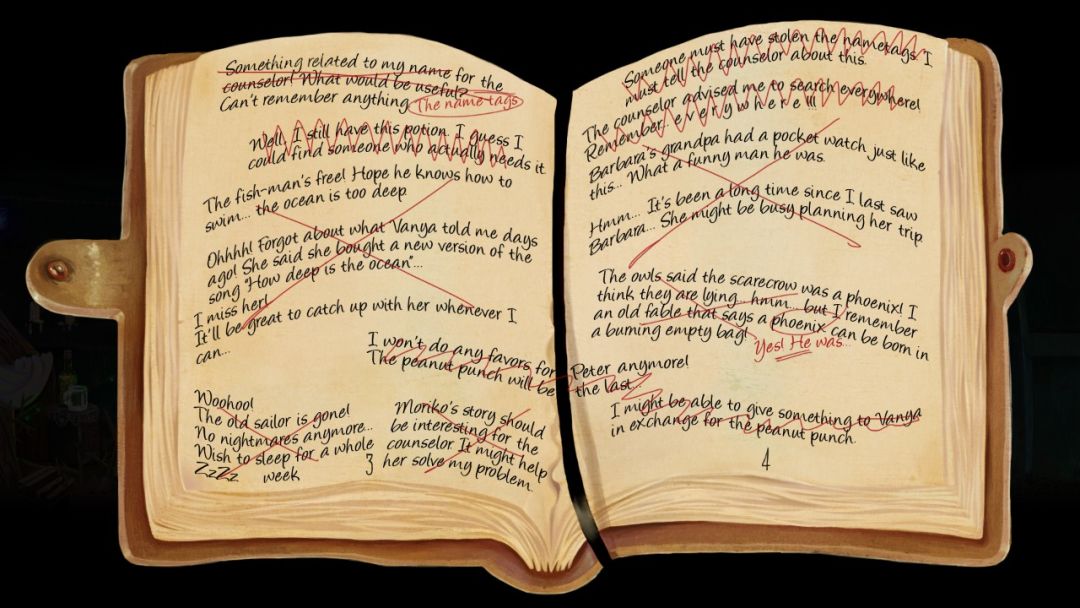 Something related to my name for the
counselor! What would be useful?
Can't remember anything The name tags
Well, I still have this potion. I guess I
could find someone who actually needs it.
The fish-man's free! Hope he knows how to
swim... the ocean is too deep
Ohhhh! Forgot about what Vanya told me days
ago! She said she bought a new version of the
song "How deep is the ocean"...
I miss her!
It'll be great to catch up with her whenever I
can...
I won't do any favors for Peter anymore!
The peanut punch will be the last...
Woohoo!
The old sailor is gone!
No nightmares anymore...
Wish to sleep for a whole
ZzZz week
Moriko's story should
be interesting for the
counselor. It might help
her solve my problem.
3
Someone must have stolen the nametags. I
must tell the counselor about this.
The counselor advised me to search everywhere!
Remember, e v e r y w h e r e !!!
Barbara's grandpa had a pocket watch just like
this... What a funny man he was.
Hmm... It's been a long time since I last saw
Barbara... She might be busy planning her trip.
The owls said the scarecrow was a phoenix! I
think they are lying... hmm... but I remember
an old fable that says a phoenix can be born in
a burning empty bag!
Yes! He was...
I might be able to give something to Vanya
in exchange for the peanut punch.
4